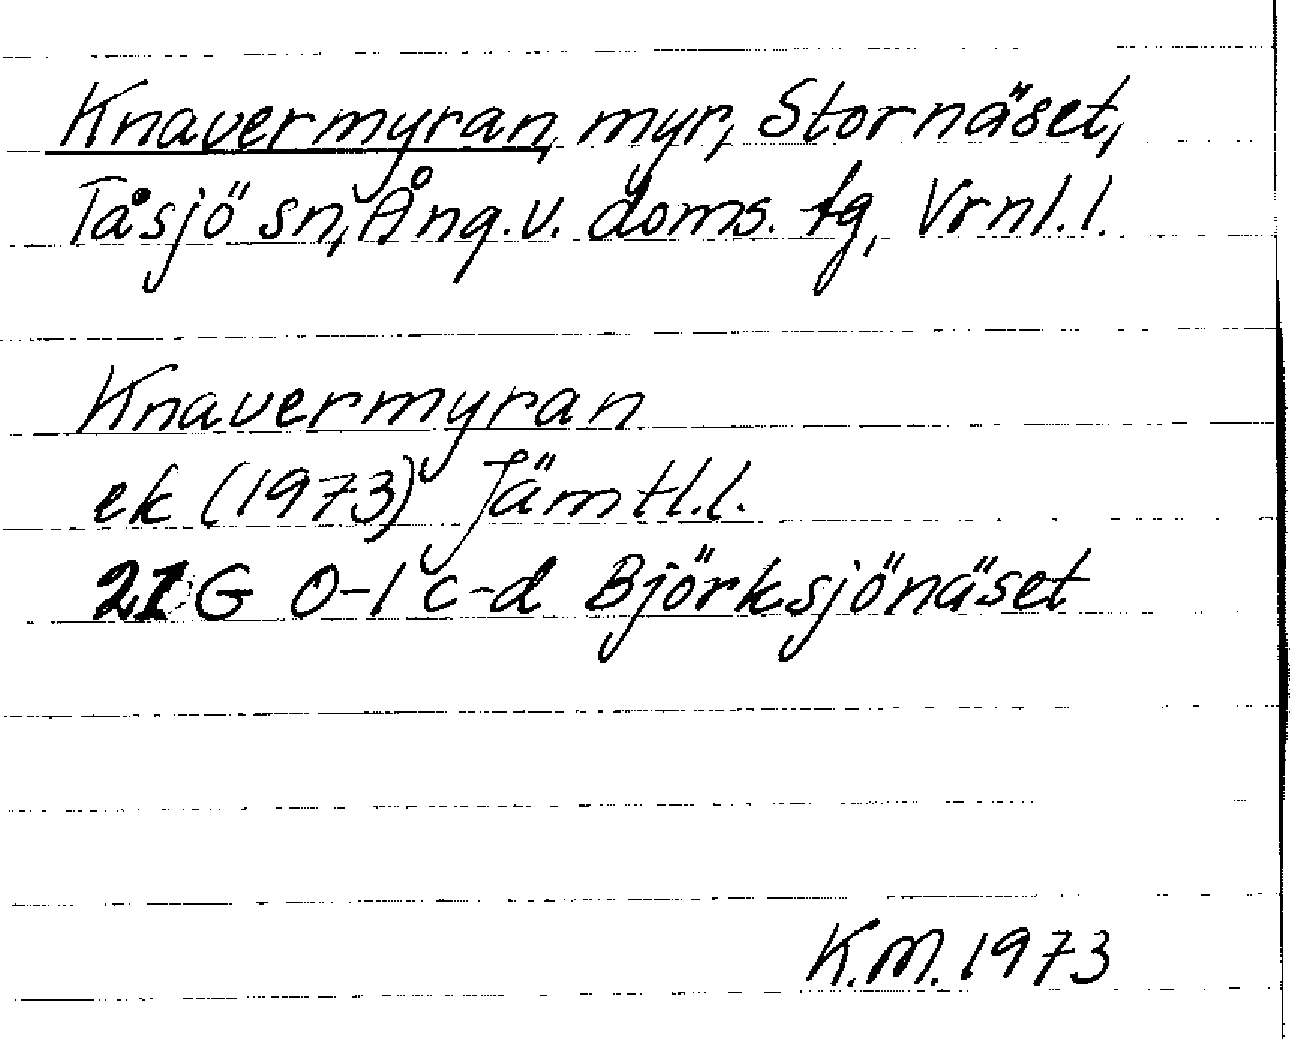 Knavermyran, myr, Stornäset,
Tåsjö sn, Ång. v. doms. tg, Vrnl. l.
Knavermyran
ek (1973) Jämtl. l.
21 G 0-1 c-d Björksjönäset
K.M. 1973